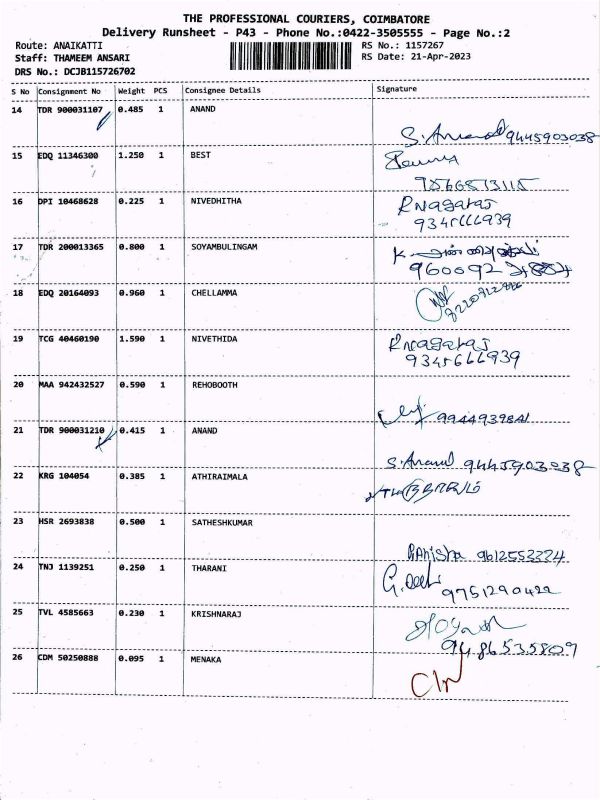 THE PROFESSIONAL COURIERS, COIMBATORE
Delivery Runsheet - P43 - Phone No.:0422-3505555 - Page No.:2
Route: ANAIKATTI RS No.: 1157267
Staff: THAMEEM ANSARI RS Date: 21-Apr-2023
DRS No.: DCJB115726702
S No Consignment No Weight PCS Consignee Details Signature
14 TDR 900031107 0.485 1 ANAND
S. Anand 9445903038
15 EDQ 11346300 1.250 1 BEST
16 DPI 10468628 0.225 1 NIVEDHITHA R Nagaraj
9345666939
17 TDR 200013365 0.800 1 SOYAMBULINGAM K.
960092
18 EDQ 20164093 0.960 1 CHELLAMMA
19 TCG 40460190 1.590 1 NIVETHIDA R Nagaraj
9345666939
20 MAA 942432527 0.590 1 REHOBOOTH
9944939841
21 TDR 900031210 0.415 1 ANAND
S. Anand 9445903038
22 KRG 104054 0.385 1 ATHIRAIMALA
23 HSR 2693838 0.500 1 SATHESHKUMAR
9612553334
24 TNJ 1139251 0.250 1 THARANI G.
9751290422
25 TVL 4585663 0.230 1 KRISHNARAJ
9486535809
26 CDM 50250888 0.095 1 MENAKA